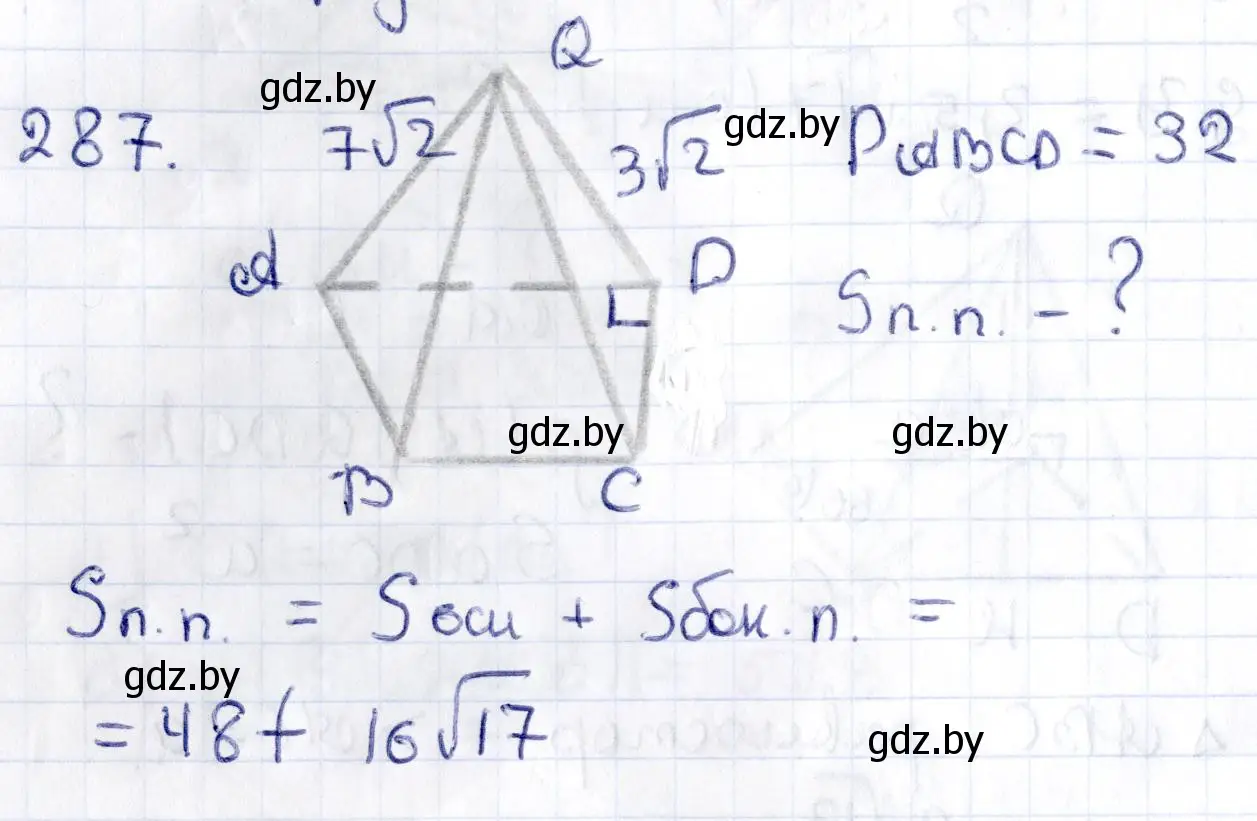 Q
gdz.by
287. 7√2 3√2 gdz.by P ABCD = 32
A D
Sп.п. - ?
gdz.by gdz.by
B C
Sп.п. = Sосн + Sбок.п. =
gdz.by
= 48 + 16√17
gdz.by